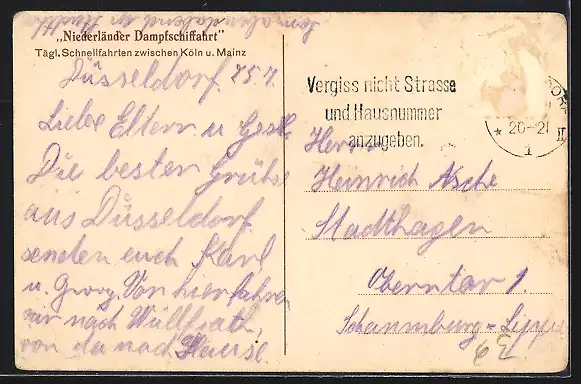 „Niederländer Dampfschiffahrt"
Tägl. Schnellfahrten zwischen Köln u. Mainz
Düsseldorf 25.7.
Liebe Eltern u Gesch.
Die besten Grüße
aus Düsseldorf
senden euch Karl
u. Georg. Von hier fahren
wir nach Wülfrath,
von da nach Hause.
Vergiss nicht Strasse
und Hausnummer
anzugeben.
* 20-21
1
II
Herrn
Heinrich Asche
Stadthagen
Oberntor 1.
Schaumburg-Lippe